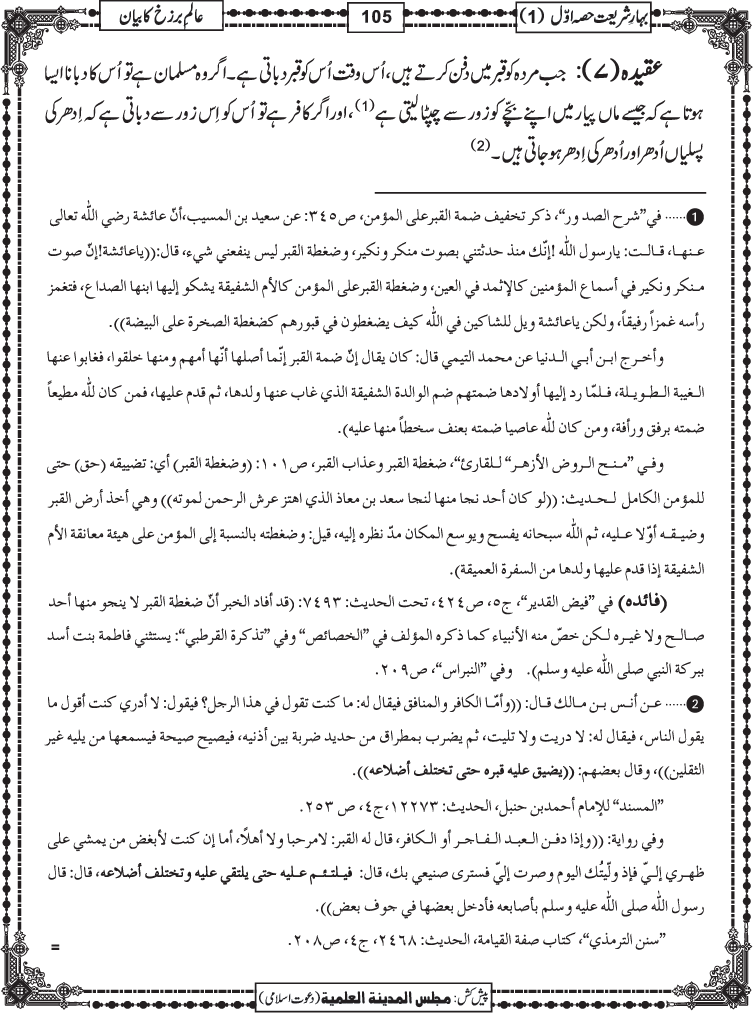 بہارِشریعت حصہ اوّل (1)
105
عالمِ برزخ کا بیان
عقیدہ (۷): جب مردہ کو قبر میں دفن کرتے ہیں، اُس وقت اُس کو قبر دباتی ہے۔ اگر وہ مسلمان ہے تو اُس کا دبانا ایسا
ہوتا ہے کہ جیسے ماں پیار میں اپنے بچّے کو زور سے چپٹا لیتی ہے(1)، اور اگر کافر ہے تو اُس کو اِس زور سے دباتی ہے کہ اِدھر کی
پسلیاں اُدھر اور اُدھر کی اِدھر ہو جاتی ہیں۔(2)
1...... في ”شرح الصدور“، ذكر تخفيف ضمة القبر على المؤمن، ص٣٤٥: عن سعيد بن المسيب،أنّ عائشة رضي الله تعالى
عنها، قالت: يارسول الله !إنّك منذ حدثتني بصوت منكر ونكير، وضغطة القبر ليس ينفعني شيء، قال:((ياعائشة!إنّ صوت
منكر ونكير في أسماع المؤمنين كالإثمد في العين، وضغطة القبرعلى المؤمن كالأم الشفيقة يشكو إليها ابنها الصداع، فتغمز
رأسه غمزاً رفيقاً، ولكن ياعائشة ويل للشاكين في الله كيف يضغطون في قبورهم كضغطة الصخرة على البيضة)).
وأخرج ابن أبي الدنيا عن محمد التيمي قال: كان يقال إنّ ضمة القبر إنّما أصلها أنّها أمهم ومنها خلقوا، فغابوا عنها
الغيبة الطويلة، فلمّا رد إليها أولادها ضمتهم ضم الوالدة الشفيقة الذي غاب عنها ولدها، ثم قدم عليها، فمن كان لله مطيعاً
ضمته برفق ورأفة، ومن كان لله عاصيا ضمته بعنف سخطاً منها عليه).
وفي ”منح الروض الأزهر“ للقارئ“، ضغطة القبر وعذاب القبر، ص١٠١: (وضغطة القبر) أي: تضييقه (حق) حتى
للمؤمن الكامل لحديث: ((لو كان أحد نجا منها لنجا سعد بن معاذ الذي اهتز عرش الرحمن لموته)) وهي أخذ أرض القبر
وضيقه أوّلا عليه، ثم الله سبحانه يفسح ويوسع المكان مدّ نظره إليه، قيل: وضغطته بالنسبة إلى المؤمن على هيئة معانقة الأم
الشفيقة إذا قدم عليها ولدها من السفرة العميقة).
(فائده) في ”فيض القدير“، ج٥، ص٤٢٤، تحت الحديث: ٧٤٩٣: (قد أفاد الخبر أنّ ضغطة القبر لا ينجو منها أحد
صالح ولا غيره لكن خصّ منه الأنبياء كما ذكره المؤلف في ”الخصائص“ وفي ”تذكرة القرطبي“: يستثني فاطمة بنت أسد
ببركة النبي صلى الله عليه وسلم). وفي ”النبراس“، ص٢٠٩.
2...... عن أنس بن مالك قال: ((وأمّا الكافر والمنافق فيقال له: ما كنت تقول في هذا الرجل؟ فيقول: لا أدري كنت أقول ما
يقول الناس، فيقال له: لا دريت ولا تليت، ثم يضرب بمطراق من حديد ضربة بين أذنيه، فيصيح صيحة فيسمعها من يليه غير
الثقلين))، وقال بعضهم: ((يضيق عليه قبره حتى تختلف أضلاعه)).
”المسند“ للإمام أحمدبن حنبل، الحديث: ١٢٢٧٣،ج٤، ص ٢٥٣.
وفي رواية: ((وإذا دفن العبد الفاجر أو الكافر، قال له القبر: لامرحبا ولا أهلاً، أما إن كنت لأبغض من يمشي على
ظهري إليّ فإذ ولّيتُك اليوم وصرت إليّ فسترى صنيعي بك، قال: فيلتئم عليه حتى يلتقي عليه وتختلف أضلاعه، قال: قال
رسول الله صلى الله عليه وسلم بأصابعه فأدخل بعضها في جوف بعض)).
”سنن الترمذي“، كتاب صفة القيامة، الحديث: ٢٤٦٨، ج٤، ص٢٠٨.
=
پیش کش: مجلس المدينة العلمية (دعوت اسلامی)